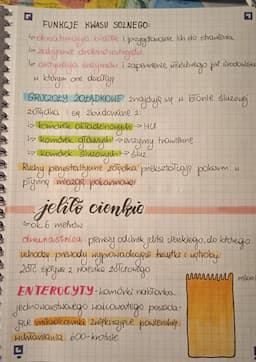 FUNKCJE KWASU SOLNEGO:
↳ denaturacja białek i przygotowanie ich do trawienia
↳ zabijanie drobnoustrojów
↳ aktywacja enzymów i zapewnienie właściwego pH środowiska
w którym one działają
GRUCZOŁY ŻOŁĄDKOWE znajdują się w błonie śluzowej
żołądka i są zbudowane z:
↳ komórek okładzinowych → HCl
↳ komórek głównych → enzymy trawienne
↳ komórek śluzowych → śluz
Ruchy perystaltyczne żołądka przekształcają pokarm w
płynną miazgę pokarmową
jelito cienkie
↳ ok. 6 metrów
dwunastnica pierwszy odcinek jelita cienkiego, do którego
uchodzą przewody wyprowadzające trzustki i wątroby.
Żółć spływa z woreczka żółciowego
ENTEROCYTY - komórki nabłonka
jednowarstwowego walcowatego posiada-
jące mikrokosmki zwiększające powierzchnię
wchłaniania 600-krotnie